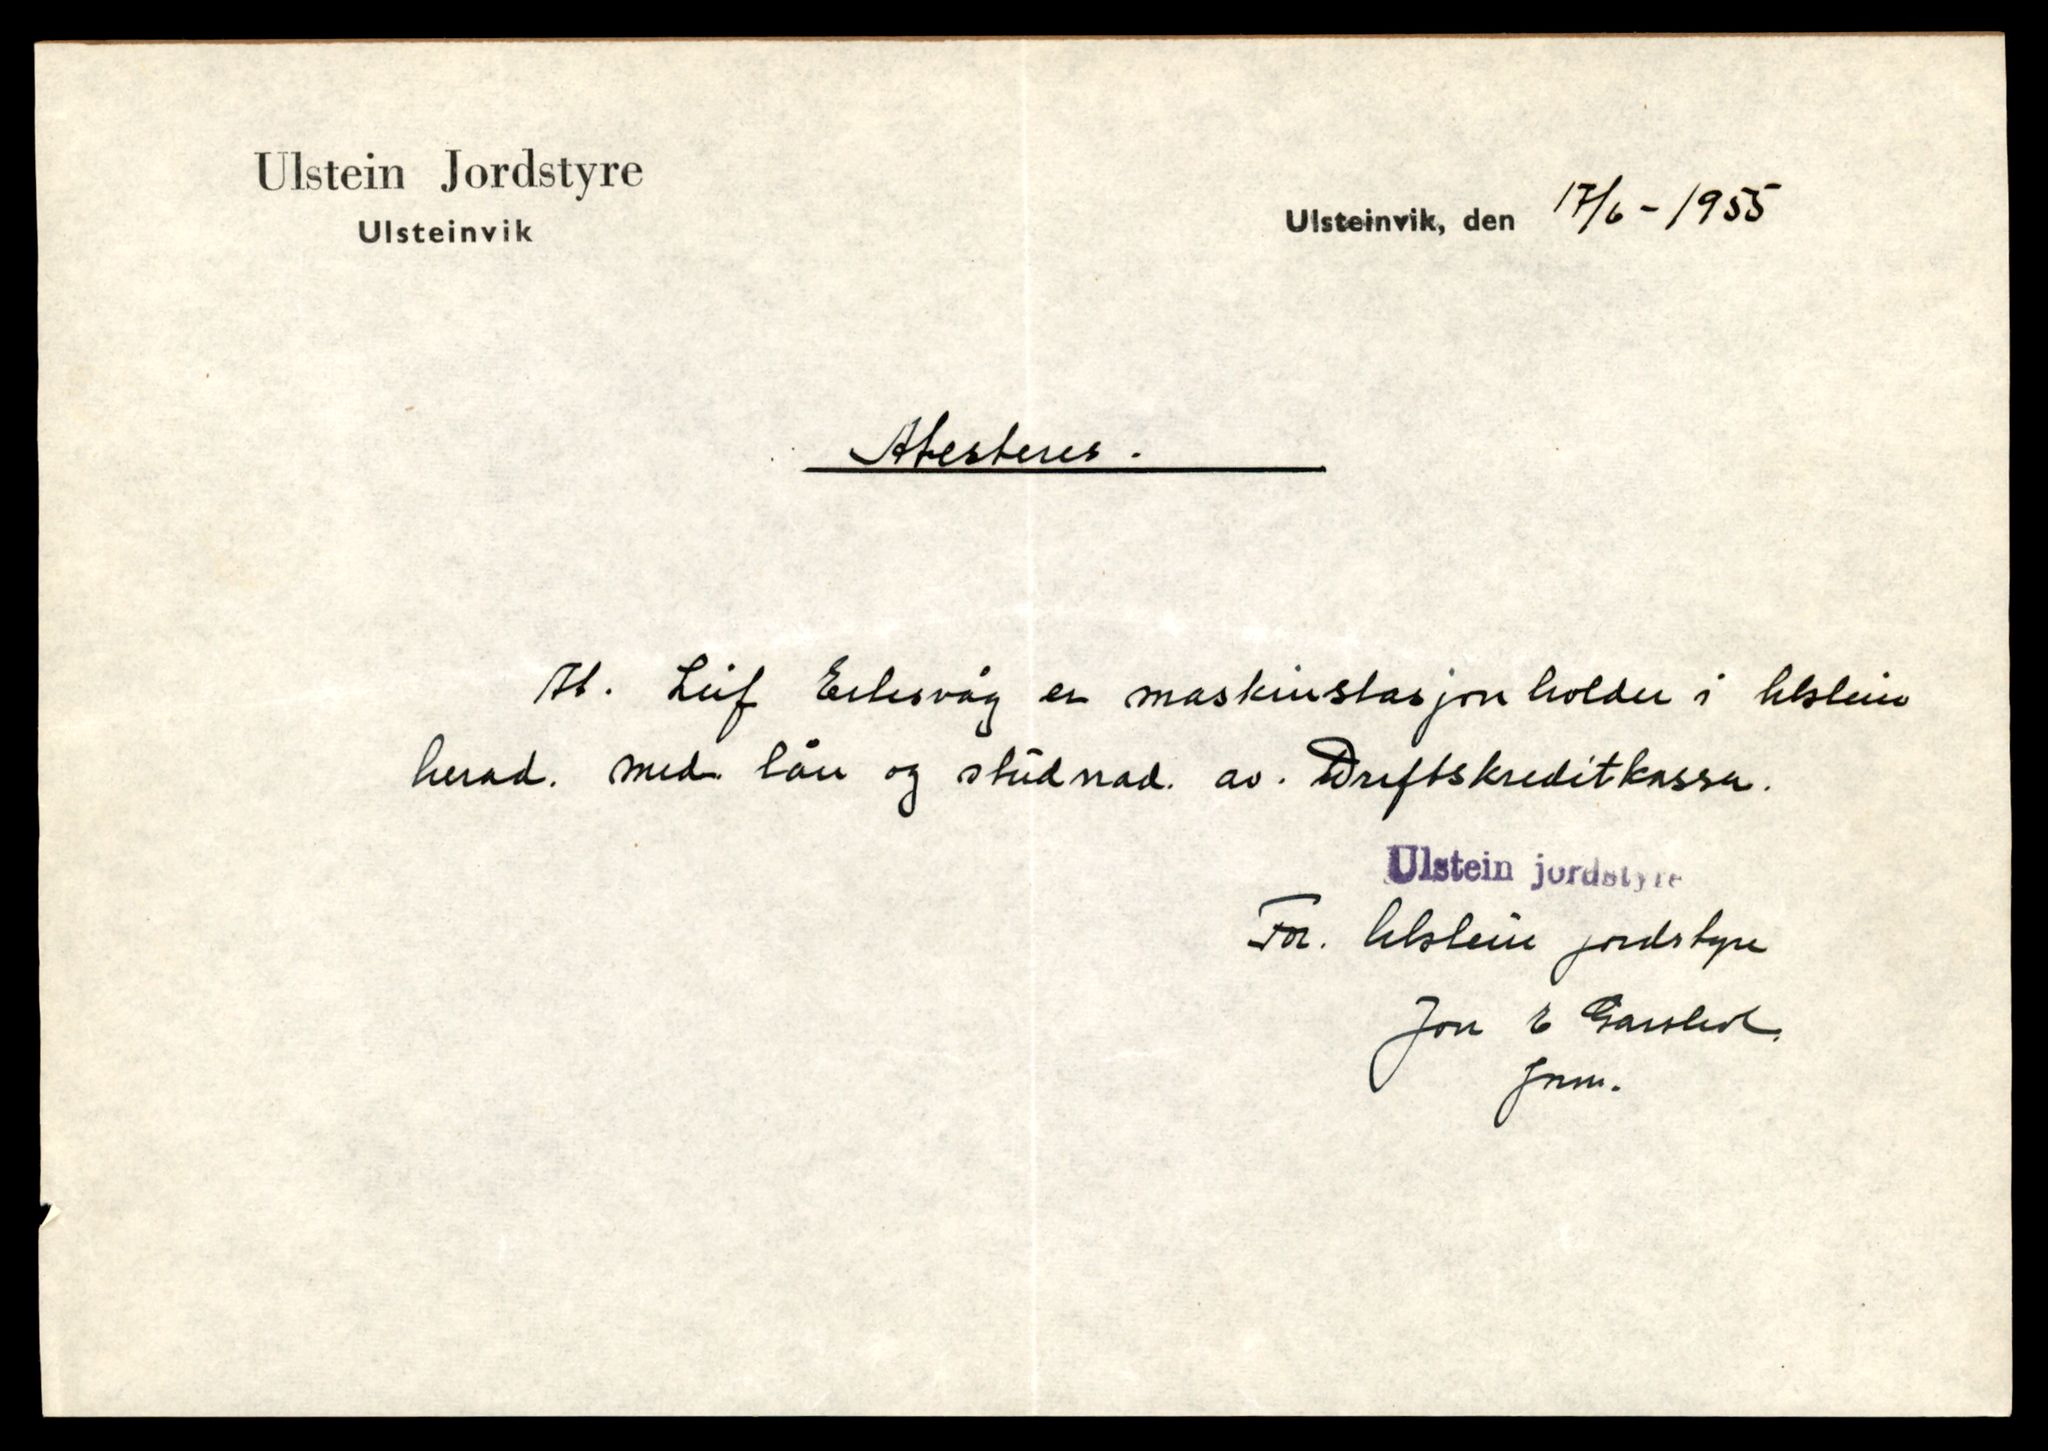 Ulstein Jordstyre
Ulsteinvik
Ulsteinvik, den 17/6 - 1955
Atesteres.
At. Leif Eikesvåg er maskinstasjonholder i Ulstein
herad. med lån og studnad. av. Driftskreditkassa.
Ulstein jordstyre
For. Ulstein jordstyre
Jon E Garshol.